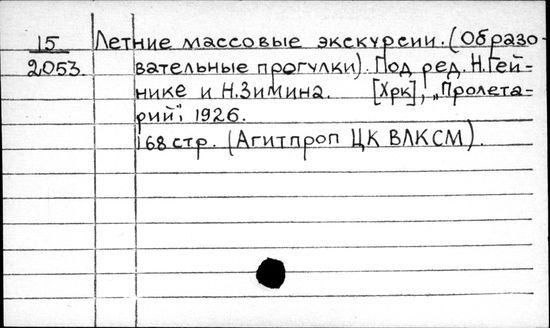 15 Летние массовые экскурсии. (Образо-
2053. вательные прогулки). Под ред. Н. Гей-
нике и Н. Зимина. [Хрк], „Пролета-
рий", 1926.
168 стр. (Агитпроп ЦК ВЛКСМ).